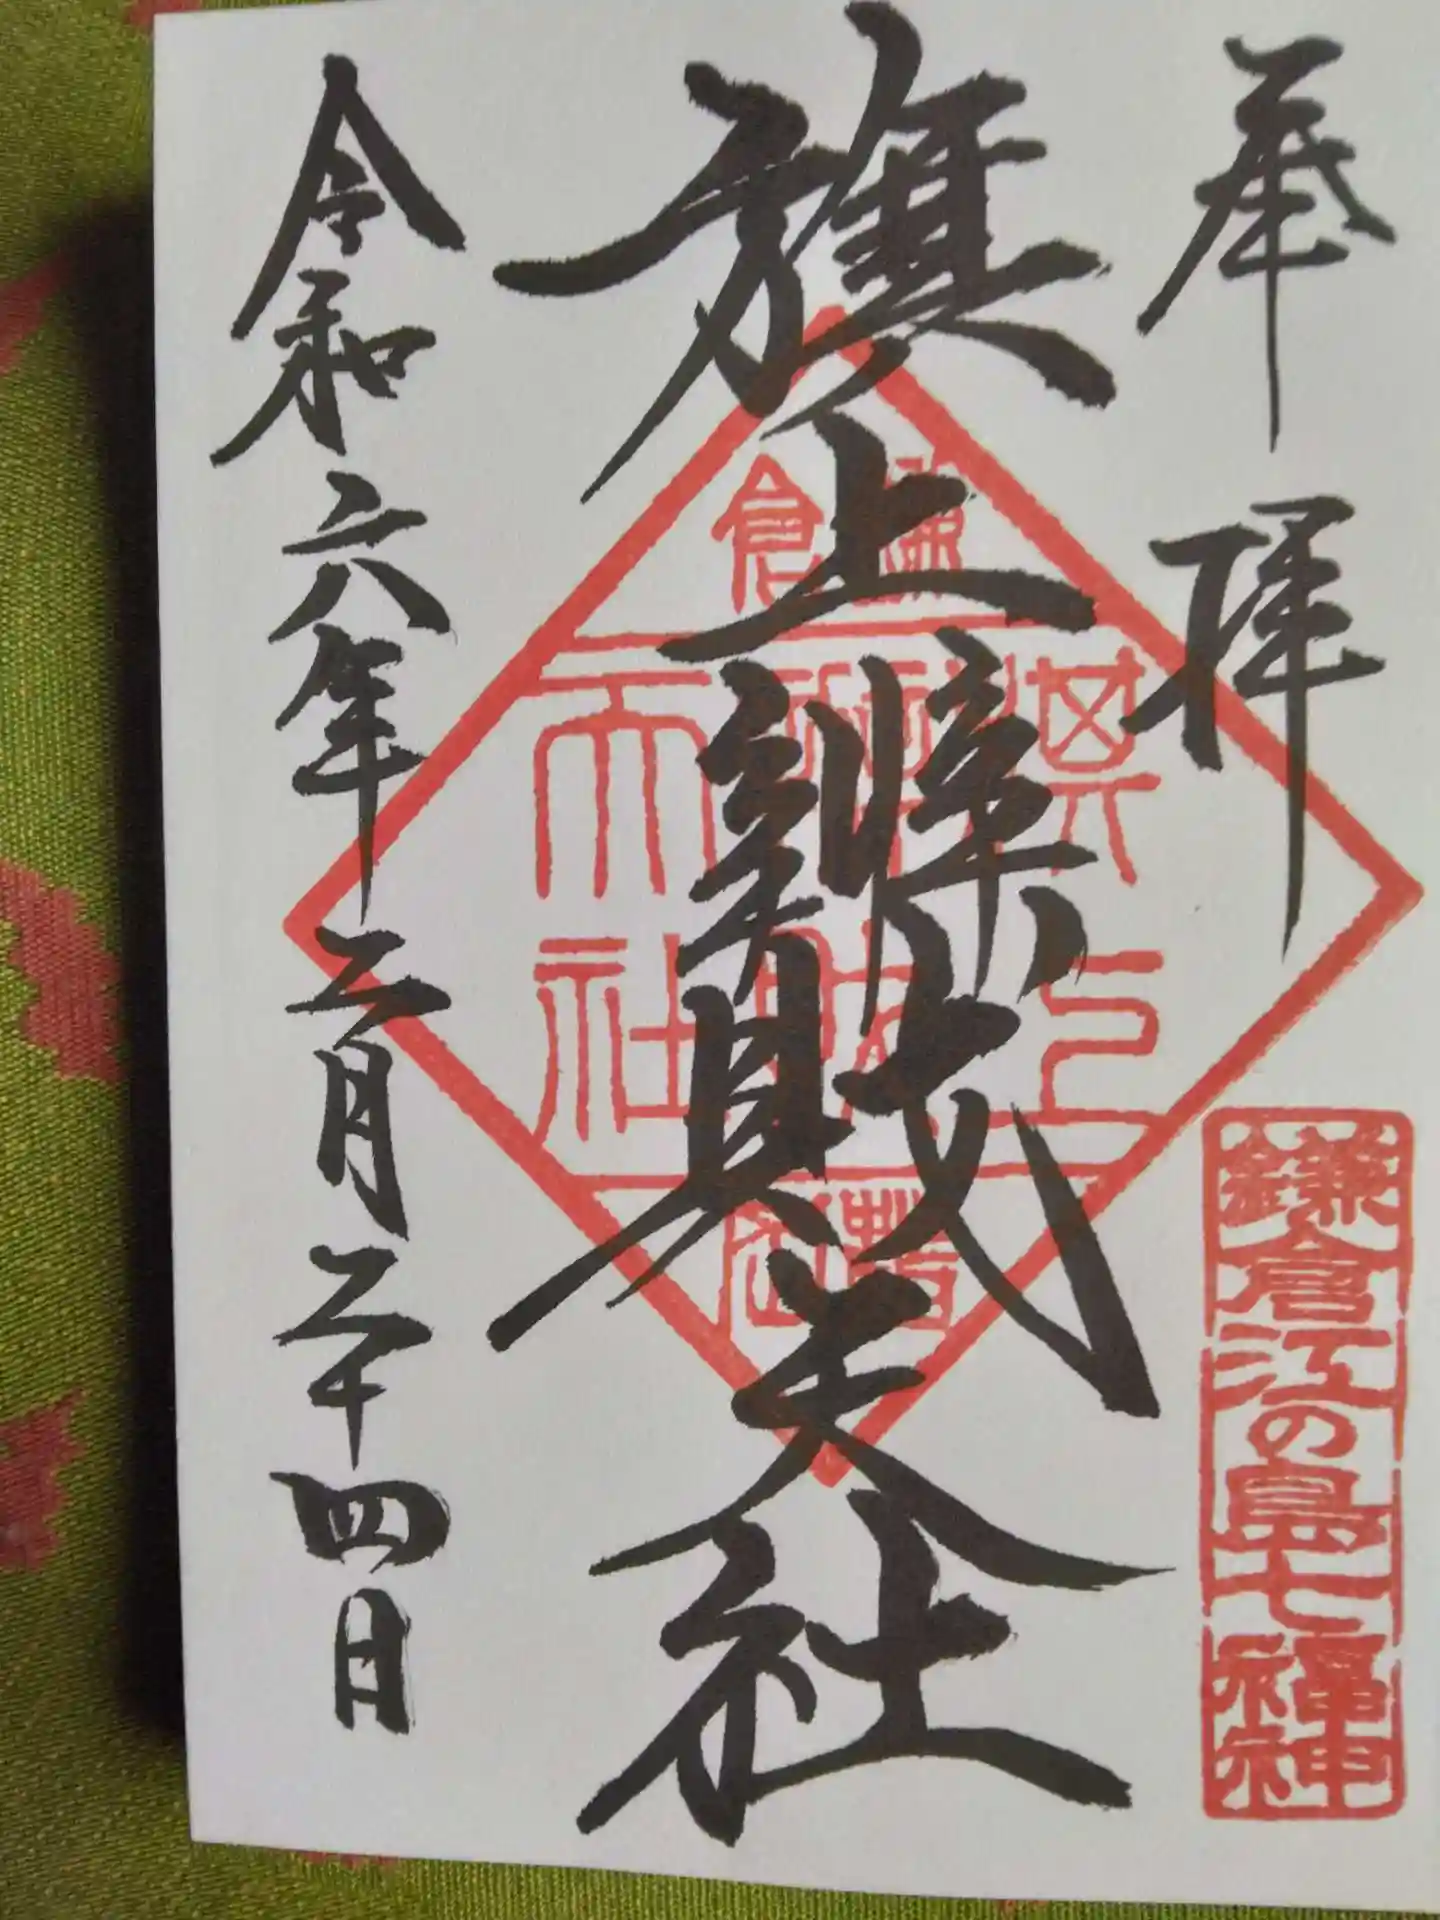 奉拝
鎌倉江の島七福神
旗上辨財天社
鎌倉
旗上
辨財
天社
令和六年二月二十四日